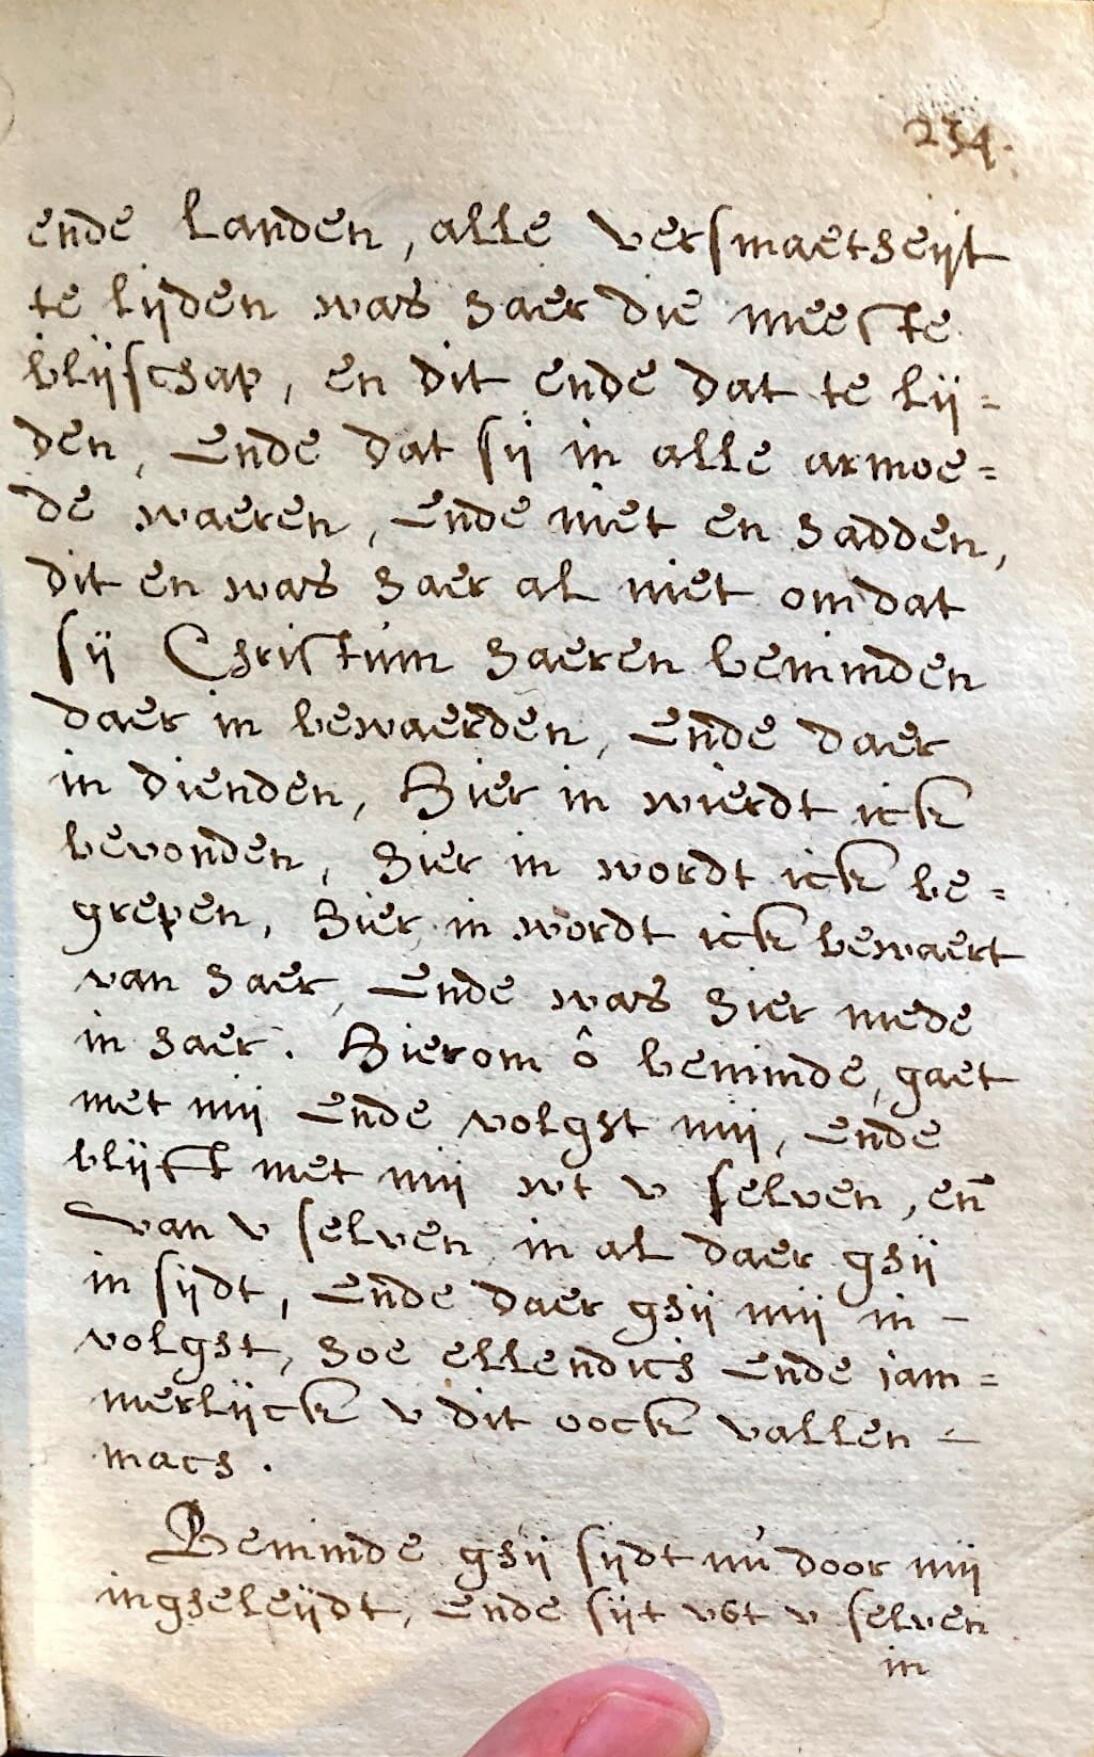 234.
ende landen, alle versmaetheijt
te lijden was haer die meeste
blijschap, en dit ende dat te lij=
den, Ende dat sij in alle armoe=
de waeren, Ende niet en hadden,
dit en was haer al niet omdat
sij Christum haeren beminden
daer in bewaerden, Ende daer
in dienden, Hier in wierdt ick
bevonden, hier in wordt ick be=
grepen, Hier in wordt ick bewaert
van haer, Ende was hier mede
in haer. Hierom ô beminde, gaet
met mij Ende volght mij, Ende
blijft met mij wt v selven, en̄
van v selven in al daer ghij
in sijdt, Ende daer ghij mij in –
volght, hoe ellendich Ende jam=
merlijck v dit oock vallen –
mach.
Beminde ghij sijdt nu door mij
ingheleijdt, Ende sijt vut v selven
in